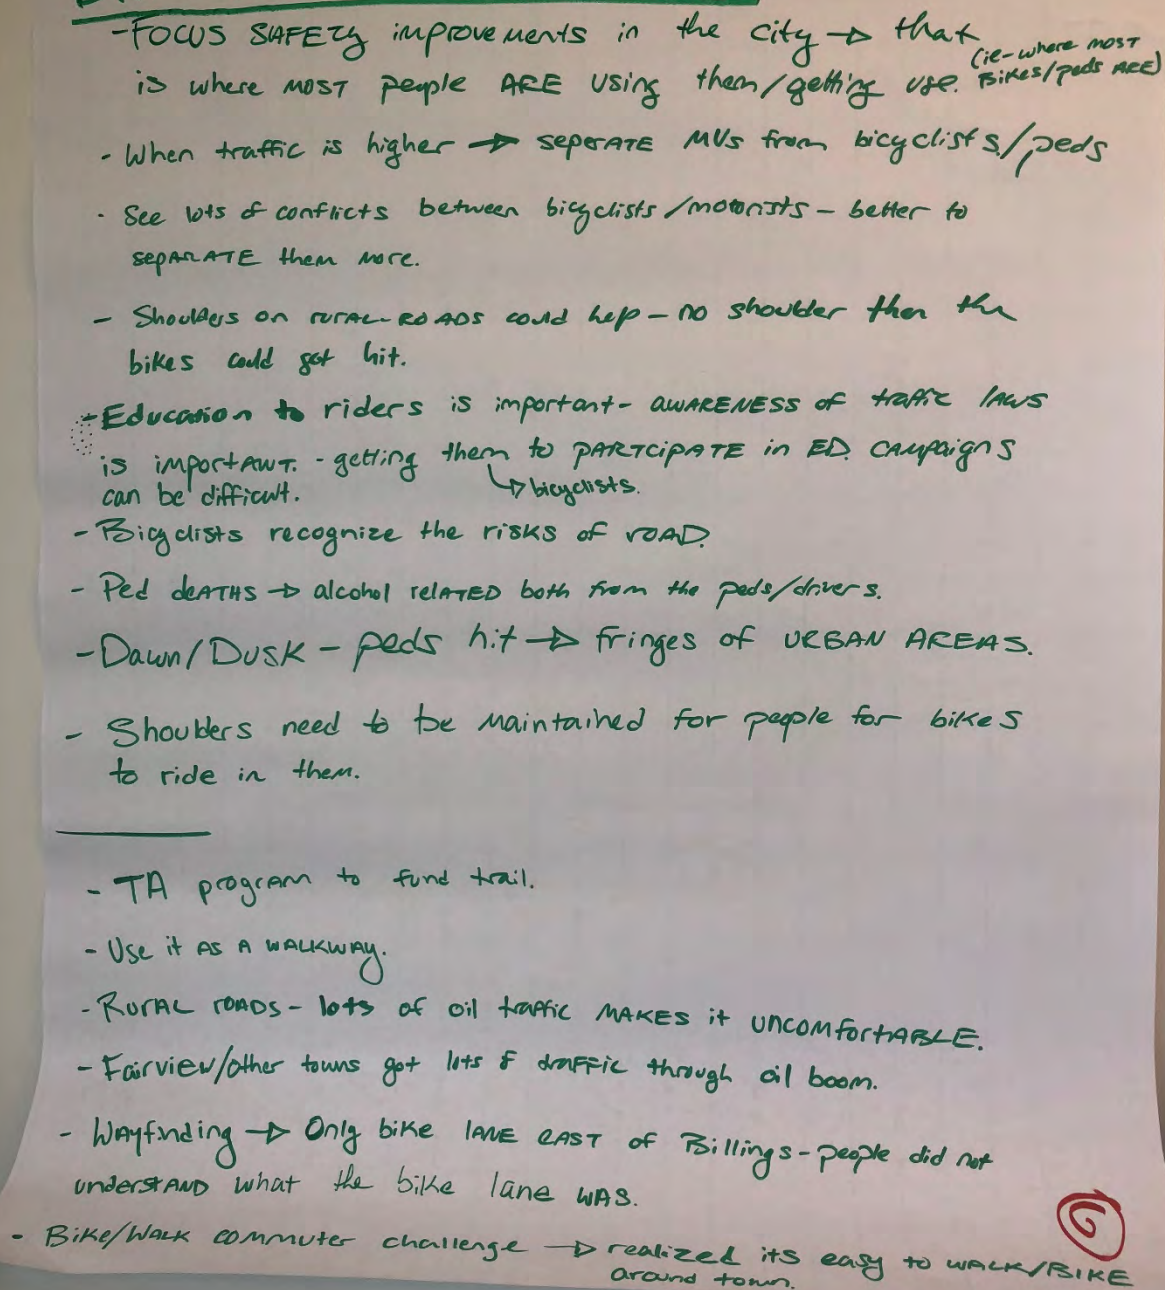 - FOCUS SAFETY improvements in the city → that
(ie - where MOST
Bikes/peds ARE)
is where MOST people ARE using them/getting use.
- When traffic is higher → sepERATE MVs from bicyclists/peds
- See lots of conflicts between bicyclists/motorists - better to
sepARATE them more.
- Shoulders on rural ROADS could help - no shoulder then the
bikes could get hit.
- Education to riders is important - AWARENESS of traffic LAWS
is importANT. - getting them to PARTCiPATE in ED. CAMPAigns
↳ bicyclists.
can be difficult.
- Bicyclists recognize the risks of ROAD.
- Ped deATHS → alcohol relATED both from the peds/drivers.
- Dawn/Dusk - peds hit → fringes of URBAN AREAS.
- Shoulders need to be maintained for people for bikes
to ride in them.
- TA program to fund trail.
- Use it AS A WALKWAY.
- RURAL ROADS - lots of oil traffic MAKES it UNCOMfortABLE.
- Fairview/other towns got lots of traffic through oil boom.
- Wayfinding → Only bike LANE EAST of Billings - people did not
understAND what the bike lane WAS.
- Bike/Walk commuter challenge → realized its easy to WALK/BIKE
around town.
6